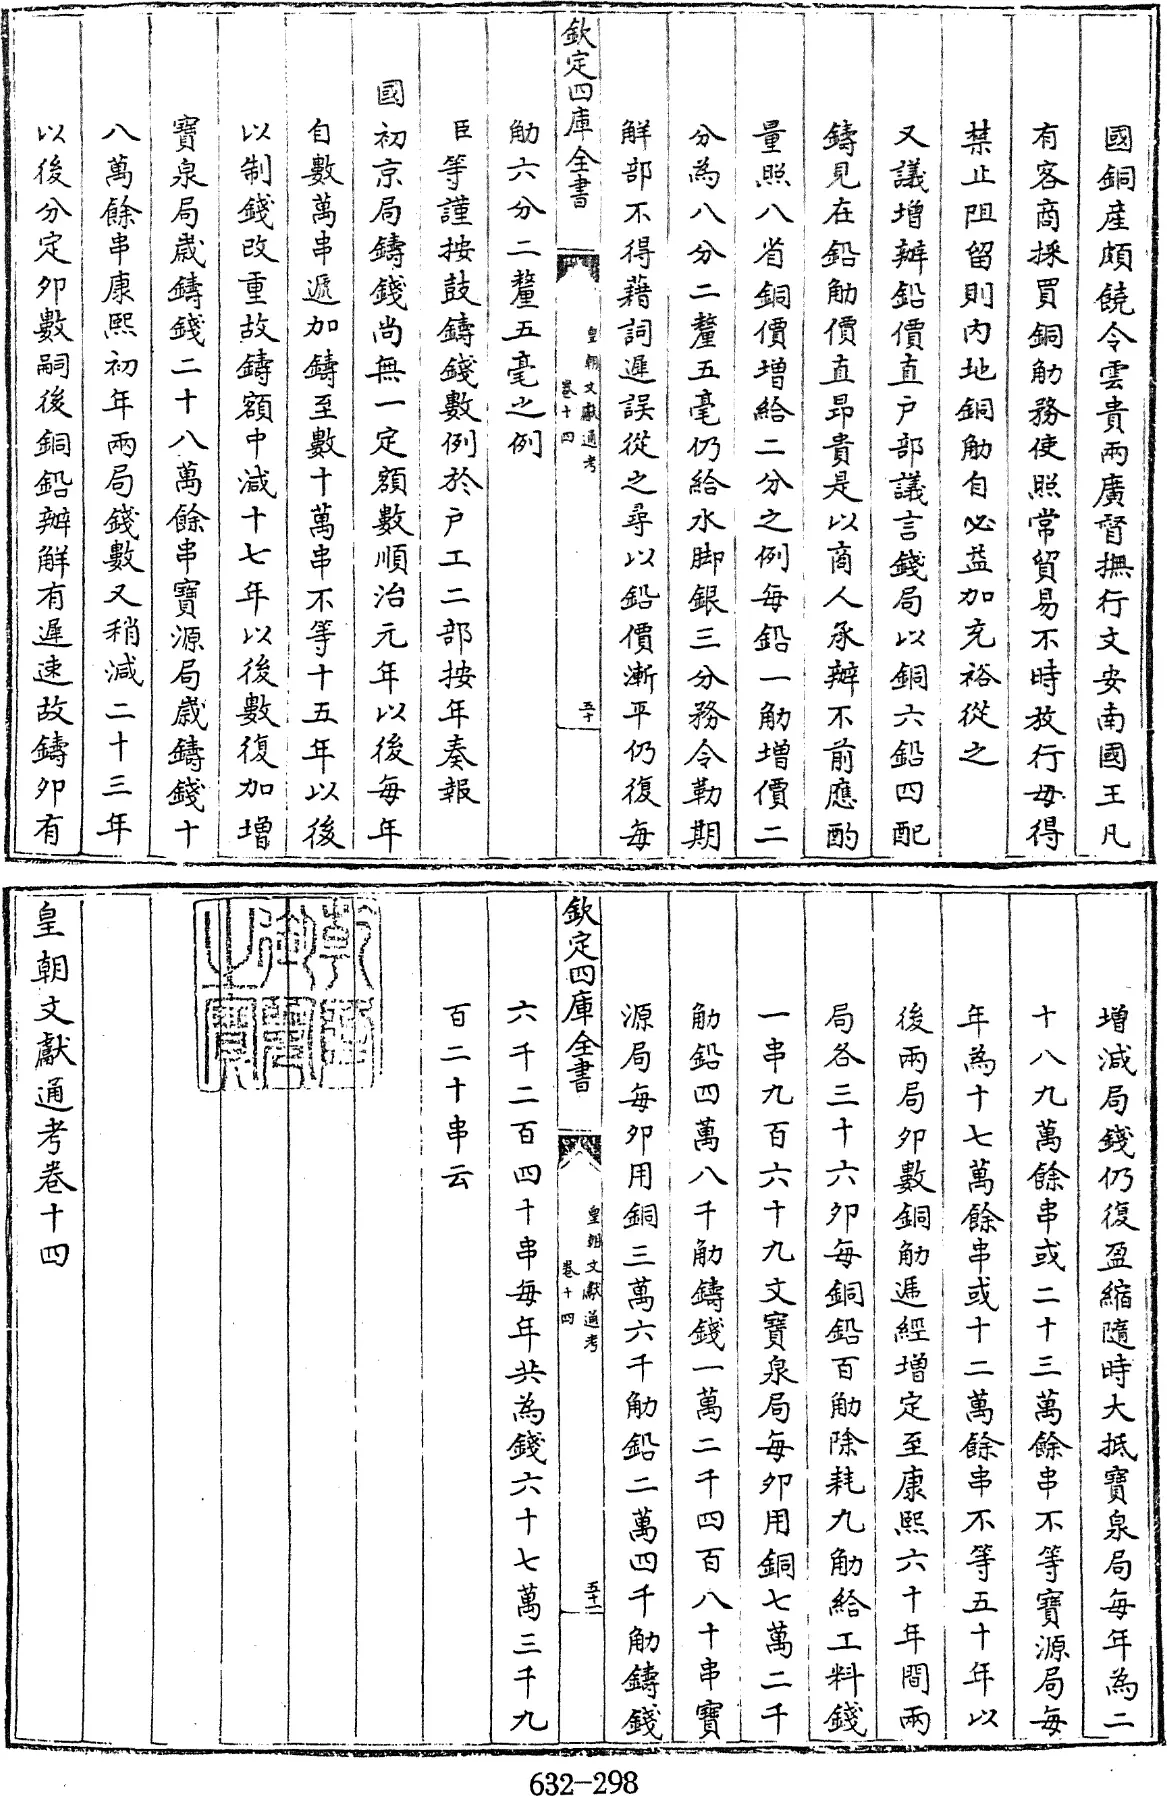 國銅產頗饒令雲貴兩廣督撫行文安南國王凡
有客商採買銅觔務使照常貿易不時放行毋得
禁止阻留則內地銅觔自必益加充裕從之
又議增辦鉛價直戶部議言錢局以銅六鉛四配
鑄見在鉛觔價直昂貴是以商人承辦不前應酌
量照八省銅價增給二分之例每鉛一觔增價二
分為八分二釐五毫仍給水脚銀三分務令勒期
解部不得藉詞遲誤從之尋以鉛價漸平仍復每
欽定四庫全書
皇朝文獻通考
卷十四
五十
觔六分二釐五毫之例
臣等謹按鼓鑄錢數例於戶工二部按年奏報
國初京局鑄錢尚無一定額數順治元年以後每年
自數萬串遞加鑄至數十萬串不等十五年以後
以制錢改重故鑄額中減十七年以後數復加增
寶泉局歲鑄錢二十八萬餘串寶源局歲鑄錢十
八萬餘串康熙初年兩局錢數又稍減二十三年
以後分定卯數嗣後銅鉛辦解有遲速故鑄卯有
增減局錢仍復盈縮隨時大抵寶泉局每年為二
十八九萬餘串或二十三萬餘串不等寶源局每
年為十七萬餘串或十二萬餘串不等五十年以
後兩局卯數銅觔遞經增定至康熙六十年間兩
局各三十六卯每銅鉛百觔除耗九觔給工料錢
一串九百六十九文寶泉局每卯用銅七萬二千
觔鉛四萬八千觔鑄錢一萬二千四百八十串寶
源局每卯用銅三萬六千觔鉛二萬四千觔鑄錢
欽定四庫全書
皇朝文獻通考
卷十四
五十一
六千二百四十串每年共為錢六十七萬三千九
百二十串云
乾隆御覽之寶
皇朝文獻通考卷十四
632-298